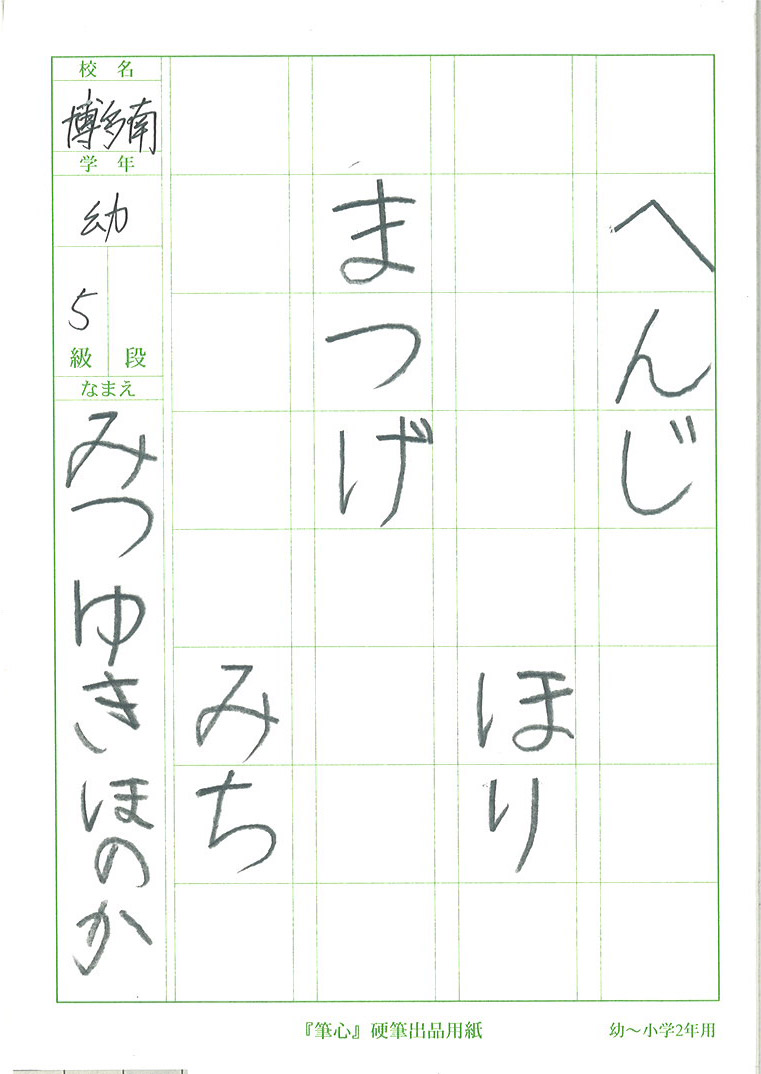 へんじ
ほり
まつげ
みち
校名
博多南
学年
幼
5
級 段
なまえ
みつゆきほのか
『筆心』硬筆出品用紙
幼～小学2年用